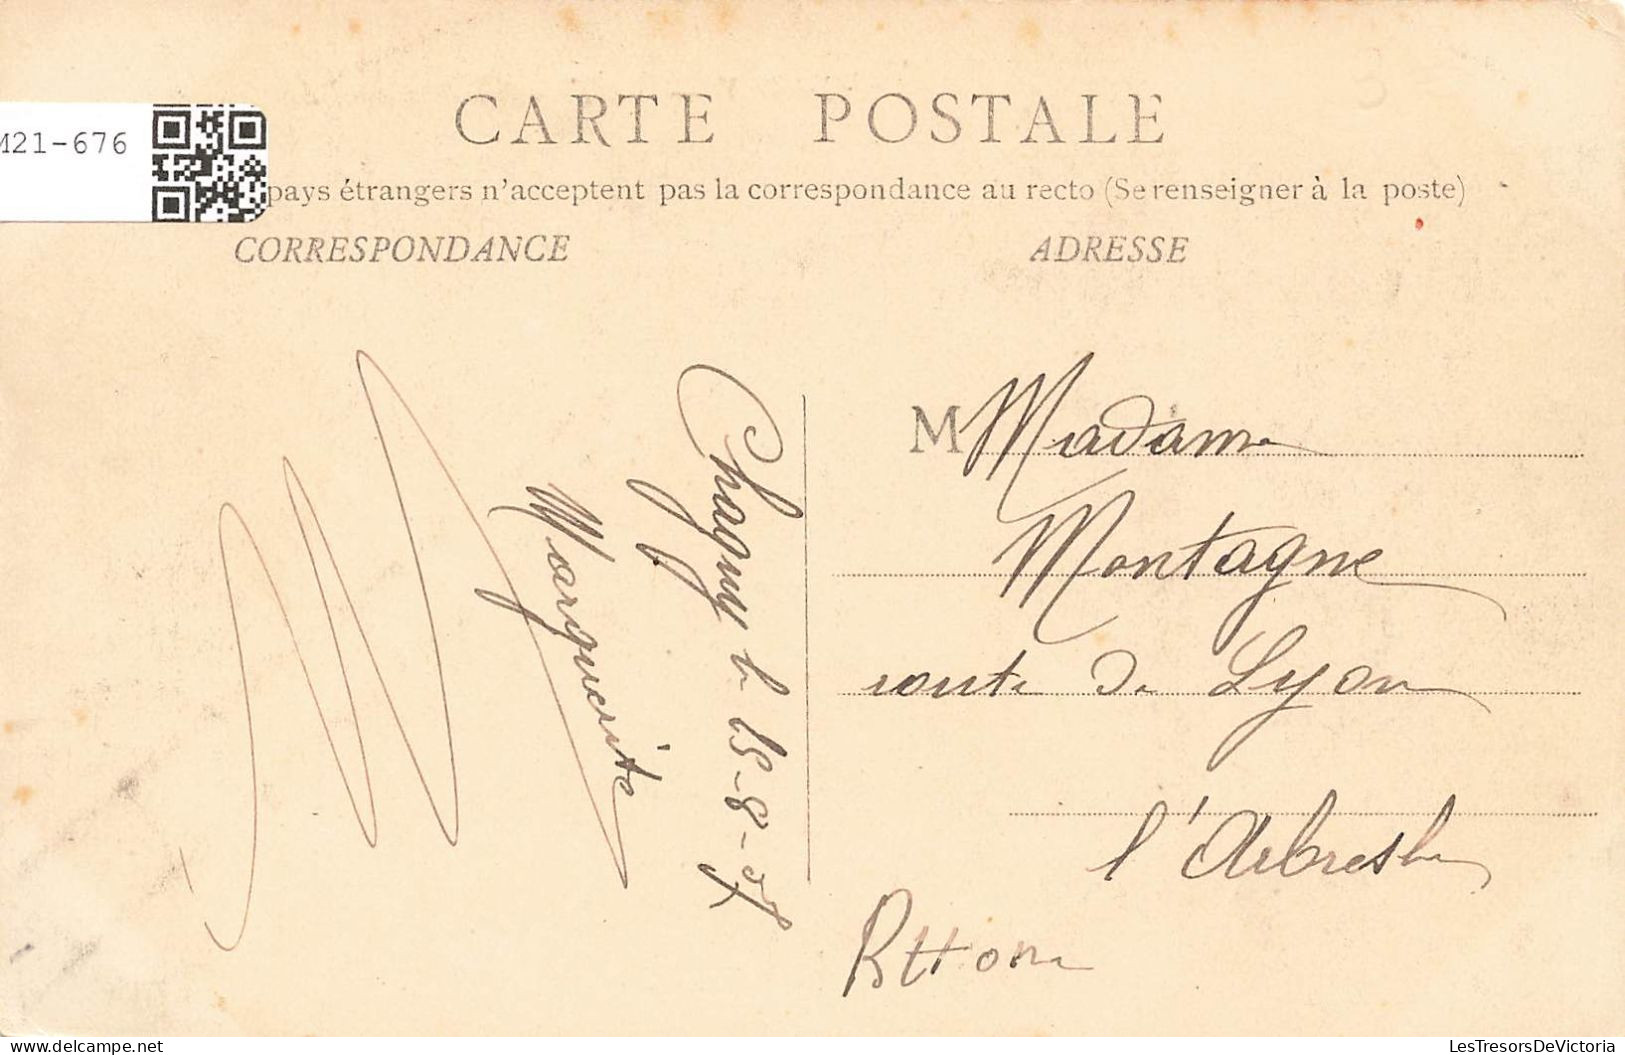 M21-676
CARTE POSTALE
pays étrangers n'acceptent pas la correspondance au recto (Se renseigner à la poste)
CORRESPONDANCE
ADRESSE
Chagny le 15-8-07
Marguerite
M Madame
Montagne
route de Lyon
l'Arbresle
Rhône
LesTresorsDeVictoria
delcampe.net